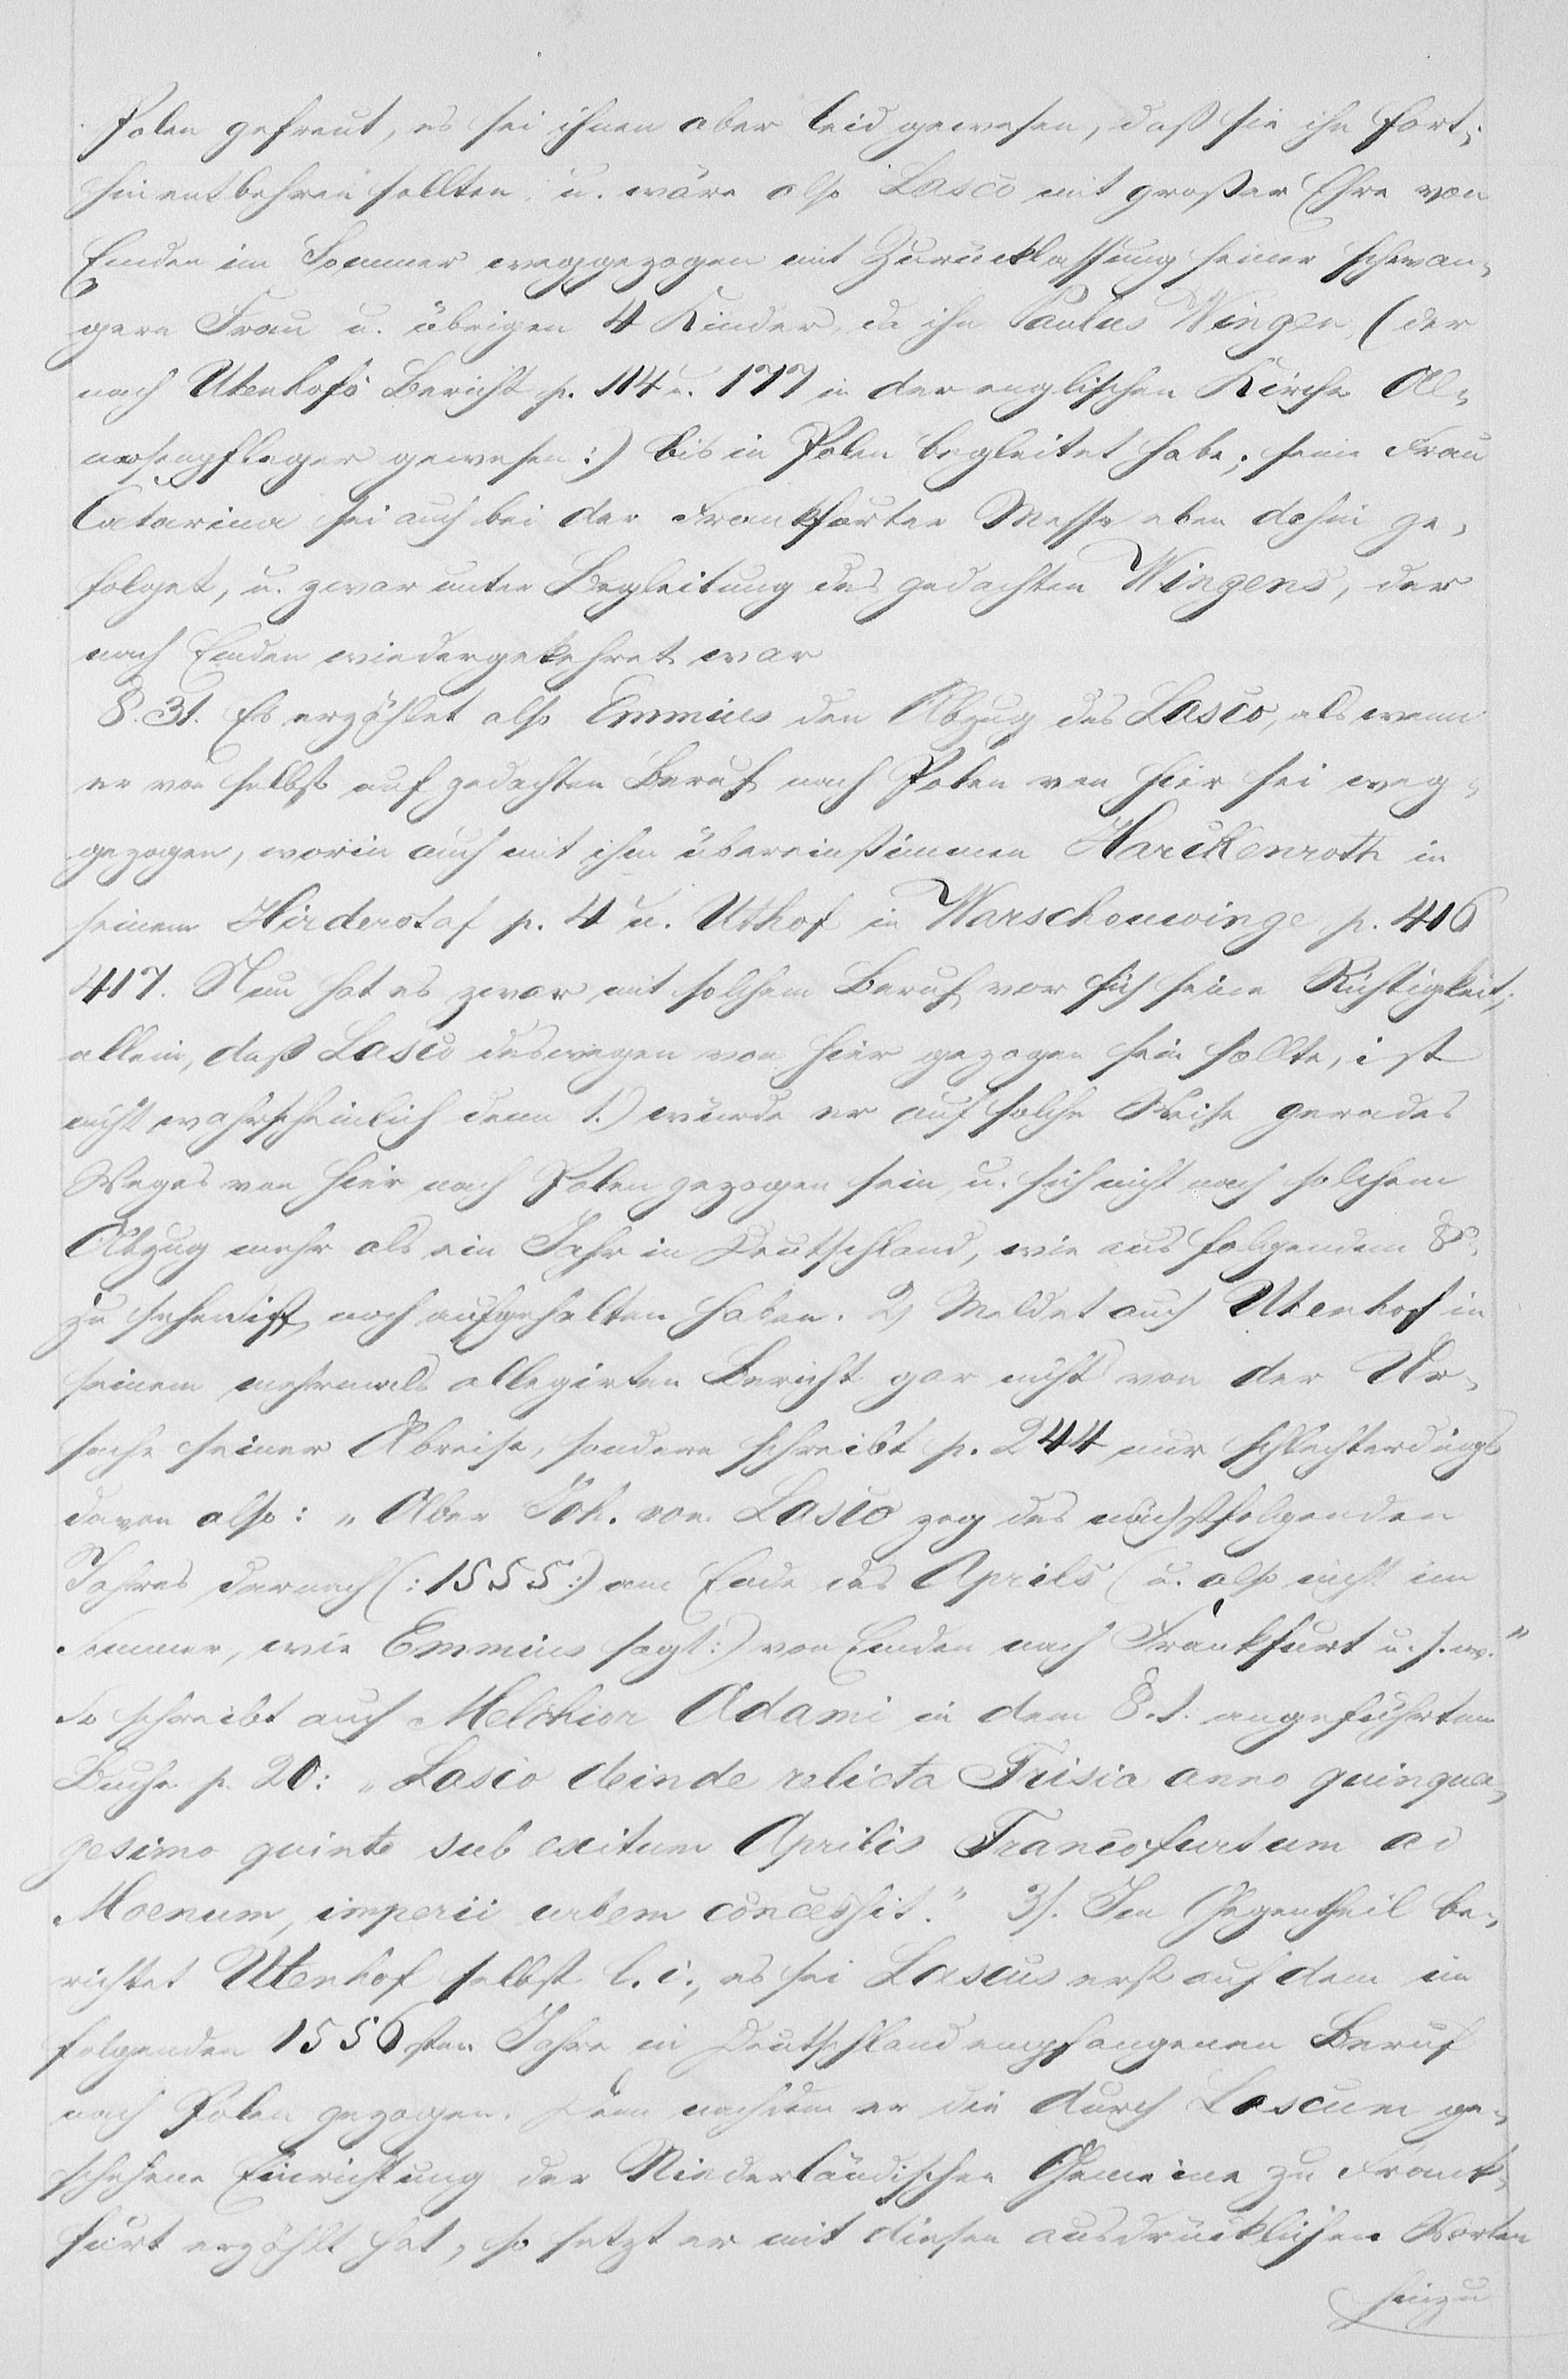 Polen gefreut, es sei ihnen aber leid gewesen, daß sie ihn fort-
hin entbehren sollten u. wäre also Lasco mit großer Ehre von
Emden im Sommer weggezogen mit Zurücklassung seiner schwan-
gern Frau u. übrigen 4 Kinder, da ihn Paulus Wingen (der
nach Utenhofs Bericht p. 114 u. 177 in der englischen Kirche Al-
mosenpfleger gewesen:) bis in Polen begleitet habe; seine Frau
Catarina sei auch bei der Frankfurter Messe eben dahin ge-
folget, u. zwar unter Begleitung des gedachten Wingens, der
nach Emden wiedergekehret war
§. 31. Es erzählet also Emmius den Abzug des Lasco, als wenn
er von selbst auf gedachten Beruf nach Polen von hier sei weg-
gezogen, worin auch mit ihm übereinstimmen Harckenroth in
seinem Hirderstaf p. 4 u. Uthof in Warschouwinge p. 416
417. Nun hat es zwar mit solchem Beruf vor sich seine Richtigkeit;
allein, daß Lasco deswegen von hier gezogen sein sollte, ist
nicht wahrscheinlich denn 1.) würde er auf solche Weise gerades
Weges von hier nach Polen gezogen sein, u. sich nicht nach solchem
Abzug mehr als ein Jahr in Deutschland, wie aus folgendem §
zu sehen ist, noch aufgehalten haben. 2) Meldet auch Utenhof in
seinem mehrmals allegirten Bericht gar nichts von der Ur-
sache seiner Abreise, sondern schreibt p. 244 nur schlechterdings
davon also: „Aber Joh. von Lasco zog des nächstfolgenden
Jahres darnach (:1555:) am Ende des Aprils (u. also nicht im
Sommer, wie Emmius sagt:) von Emden nach Frankfurt u. s. w."
So schreibt auch Melchior Adami in dem §. 1. angeführten
Buche p. 20: „Lasco deinde relicta Frisia anno quinqua-
gesimo quinto sub exitum Aprilis Francofurtum ad
Moenum, imperii urbem concessit." 3). Im Gegentheil be-
richtet Utenhof selbst l. c., es sei Lascus erst auf dem im
folgenden 1556sten Jahre in Deutschland empfangenen Beruf
nach Polen gezogen. Denn nachdem er die durch Lascum ge-
schehene Einrichtung der Niederländischen Gemeine zu Frank-
furt erzählt hat, so setzt er mit diesen ausdrücklichen Worten
hinzu